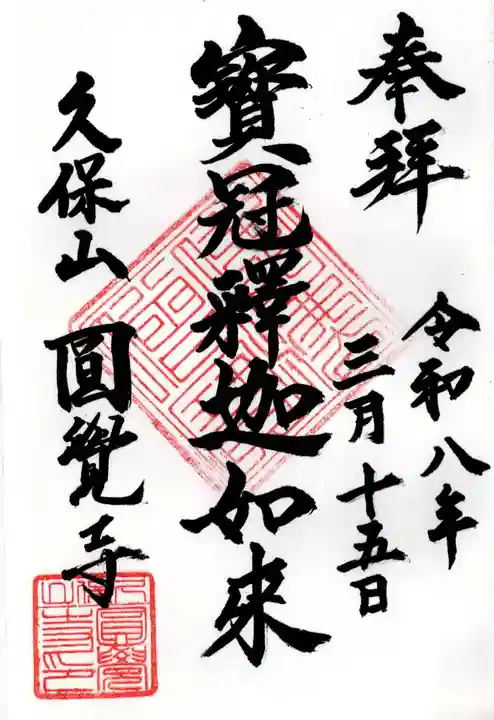 奉拜
令和八年
三月十五日
寶冠釋迦如來
久保山圓覺寺